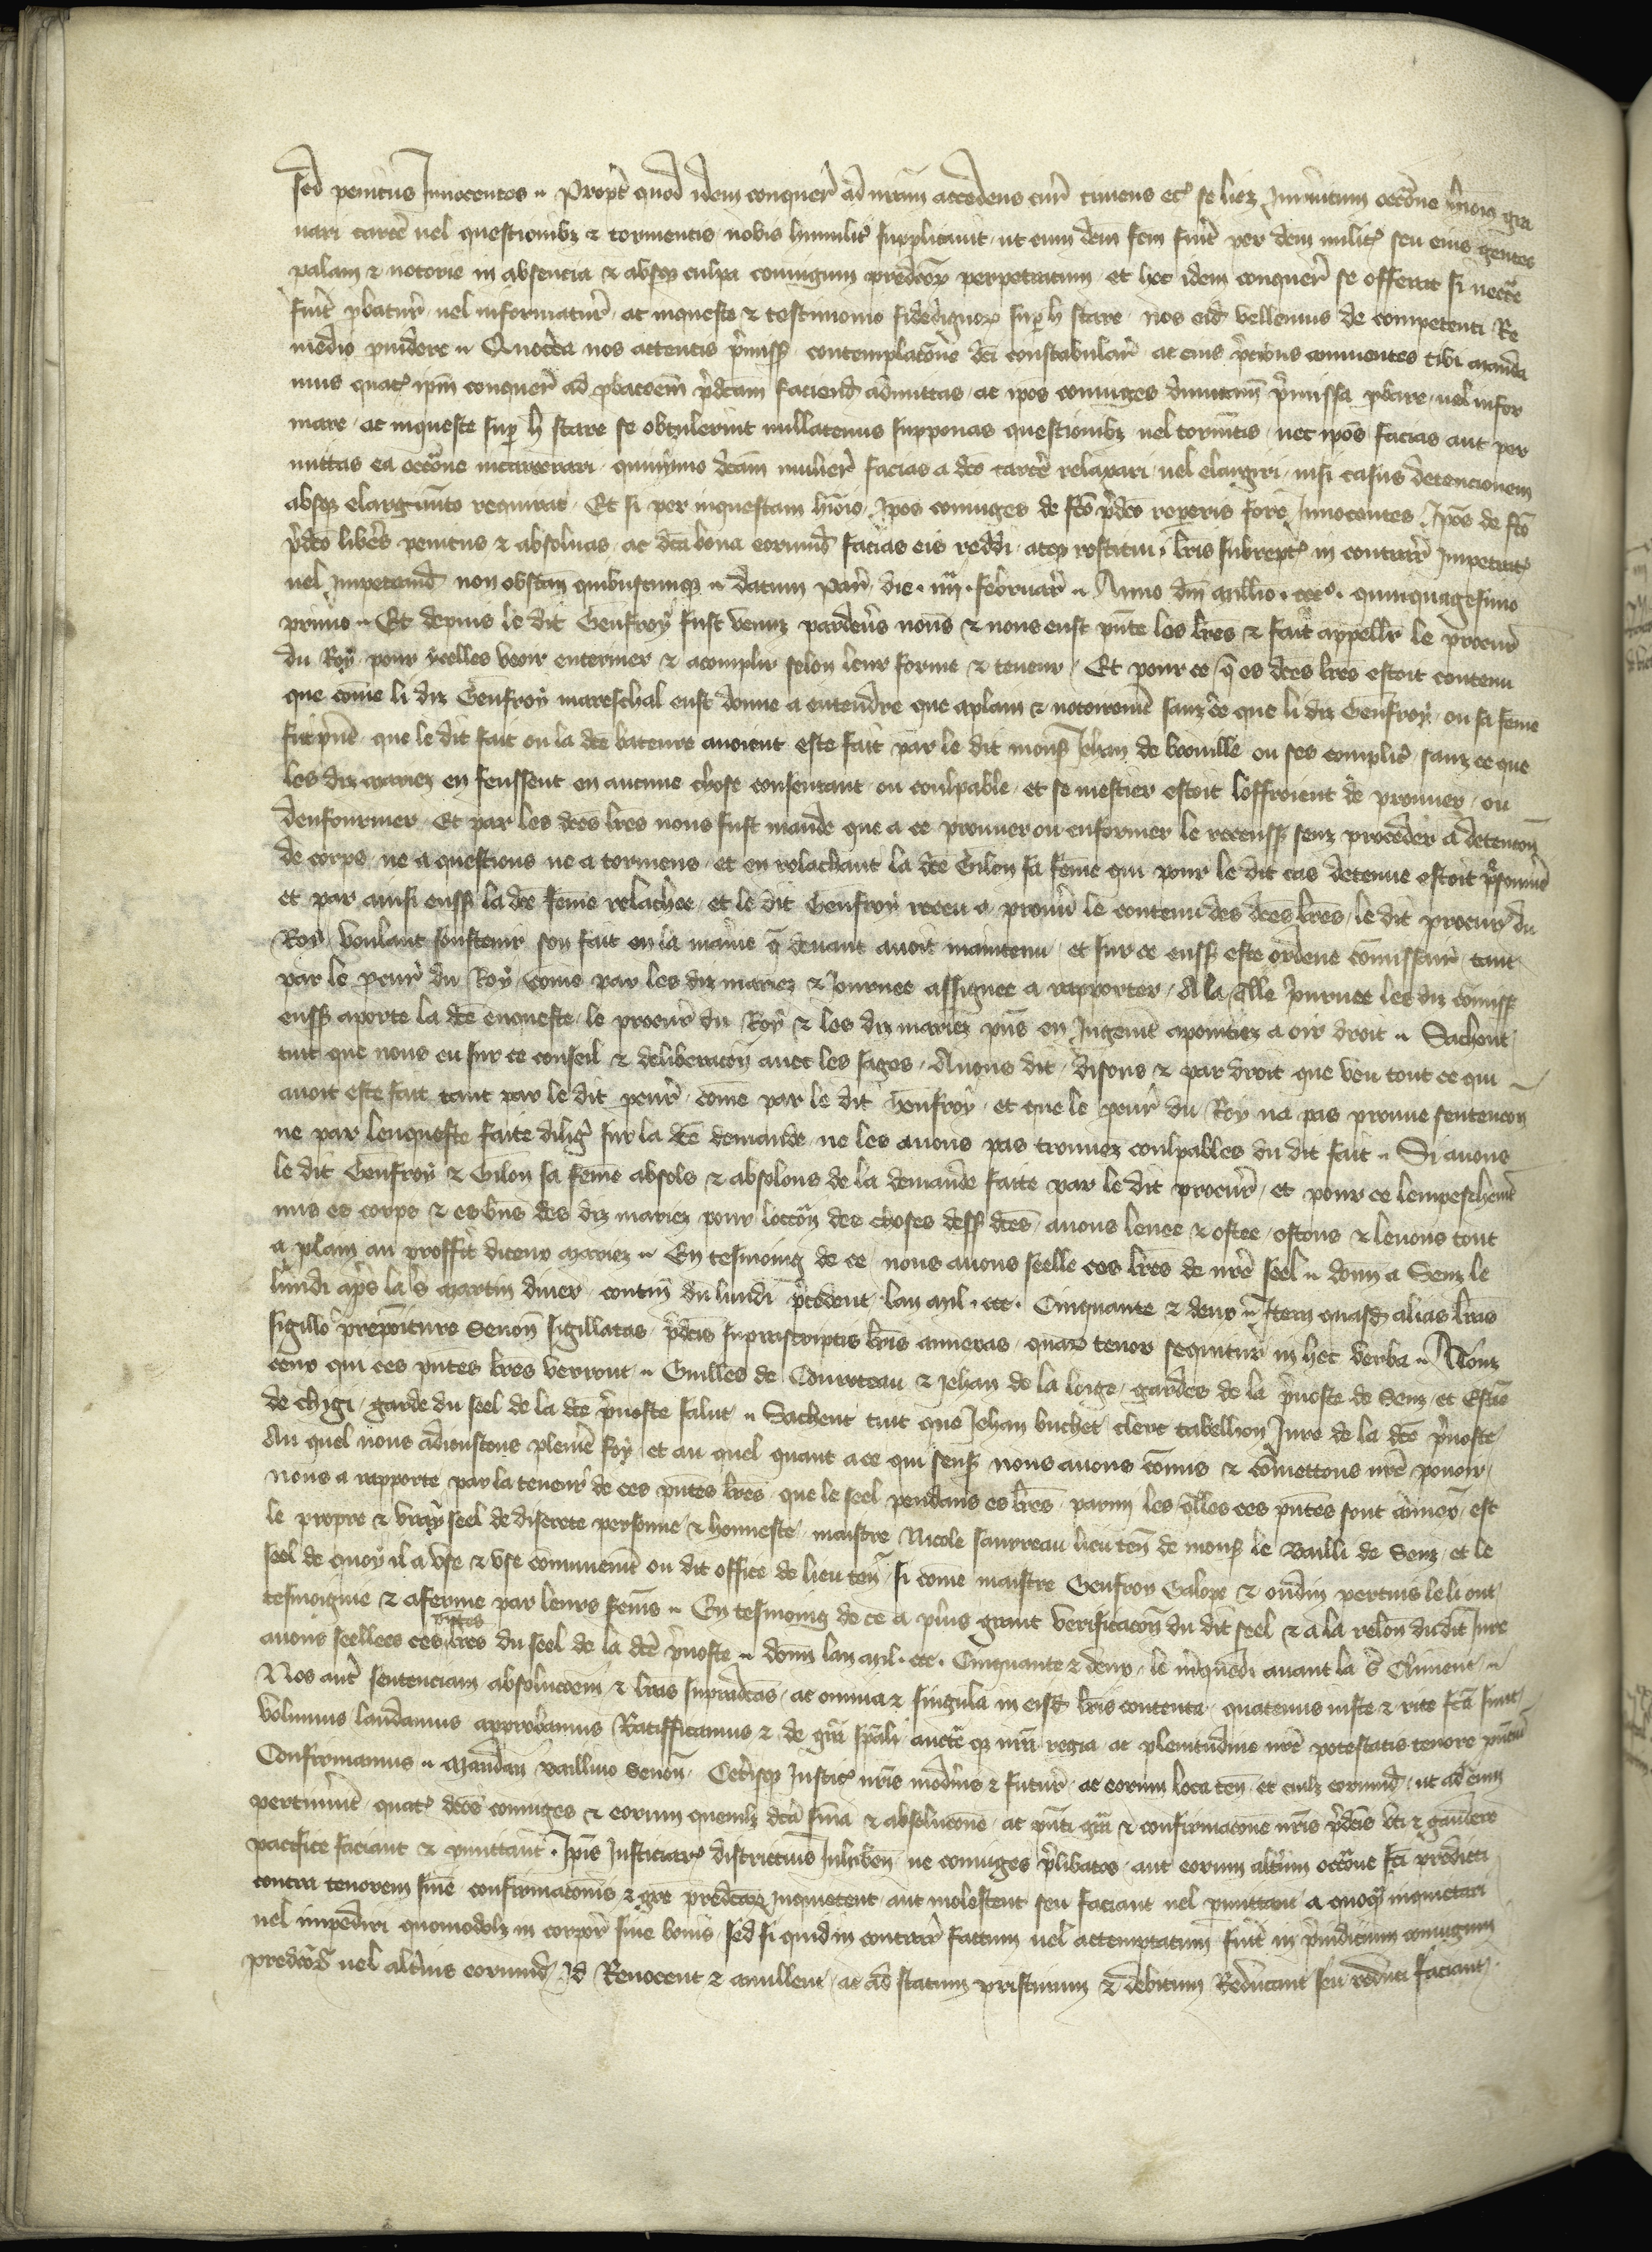 sed penitus Innocentes .. Propt̃ quod idem conquer̃ ad nr̃am accedens cur̃ timens etc̃ se licz Inmeritum occc̃one p̃missor̃ gra
uari carcẽ uel questionibz & tormentis nobis humilit̃ supplicauit ut cum dcm̃ fcm̃ fuer̃it per dcm̃ milit̃ seu eius gentes
palam & notorie in absencia & absqz culpa coniugum predc̃or̃ perpetratum et hec idem conquer̃ se offerat si necc̃e
fuer̃it p̃batur̃ uel informatur̃ ac inqueste & testimonio fidedignor̃ sup̃ h̃ stare nos eid̃ vellemus de competenti Re
medio p̃uidere .. Quocc̃a nos attentis p̃miss̃ contemplac̃one dc̃i constabular̃ ac eius p̃cibus annuentes tibi manda
mus quat̃ ip̃m conquer̃ ad p̃bac̃oem p̃dc̃am faciend̃ admittas ac ip̃os coniuges dumtam̃ p̃missa p̃bare uel infor
mare ac inqueste sup̃ h̃ stare se obtulerint nullatenus supponas questionibz uel torm̃tis nec ip̃os facias aut per
mittas ea occc̃one incarcerari quinymo dc̃am mulier̃ facias a dc̃o carcẽ relaxari uel elargiri nisi casus detencionem
absqz elargim̃to requirat Et si per inquestam hm̃oi Ip̃os coniuges de fc̃o p̃dc̃o reperis fore Innocentes Ip̃os de fc̃o
p̃dc̃o liber̃es penitus & absoluas ac dc̃a bona eorumd̃ facias eis reddi atqz restitui lr̃is subrept̃ in contrar̃ Impetrat̃
uel Impetrand̃ non obstan̄ quibuscumqz .. datum par̃ die . iiij . februar̃ .. Anno dn̄i mill̃io . ccc° . quinquagesimo
primo .. Et depuis le dit Geuffroy fust venuz pardeũs nous & nous eust pñte les lr̃es & fait appell̃r le procur̃
du Roy pour ycelles veoir enteriner & acomplir selon leur forme & teneur Et pour ce q̃ es dc̃es lr̃es estoit contenu
que com̃e li diz Geuffroy mareschal eust donne a entendre que aplain & notoirem̃t sanz ce que li diz Geuffroy ou sa fem̃e
fut p̃nẽ que le dit fait ou la dc̃e bateure auoient este fait par le dit mons̃ Jehan de bromille ou ses complic̃ sanz ce que
les diz mariez en feussent en aucune chose consentant ou coulpable et se mestier estoit loffroient de prouuer ou
denfourmer Et par les dc̃es lr̃es nous fust mande que a ce prouuer ou enformer le receuss̃ senz proceder a detenc̃on
de corps ne a questions ne a tormens et en relachant la dc̃e Gilon sa fem̃e qui pour le dit cas detenue estoit p̃sonnier̃e
et par ainsi euss̃ la dc̃e fem̃e relachee et le dit Geuffroy receu a prouũ le contenu des dc̃es lr̃es le dit procur̃ du
Roy voulant soustenir son fait en la maniẽ q̃ deuant auoit maintenu et sur ce euss̃ este ordene com̃issair̃ tant
par le pcur̃ du Roy com̃e par les diz mariez & Journee assignee a rapporter A la q̃lle Journee les diz com̃iss̃
euss̃ aporte la dc̃e enqueste le procur̃ du Roy & les diz mariez p̃ns en Jugem̃t apointiez a oir droit .. Sachent
tuit que nous eu sur ce conseil & deliberac̃on auec les sages Auons dit disons & par droit que veu tout ce qui
auoit este fait tant par le dit pcur̃ com̃e par le dit Geuffroy et que le pcur̃ du Roy na pas prouue sentenc̃on
ne par lenqueste faite dilig̃ sur la dc̃e demande ne les auons pas trouuez coulpables du dit fait .. Si auons
le dit Geuffroy & Gilon sa fem̃e absols & absolons de la demande faite par le dit procur̃ et pour ce lempeschem̃t
mis es corps & es biens des diz mariez pour locc̃on des choses dess̃ dc̃es auons leuee & ostee ostons & leuons tout
a plain au proffit diceux mariez .. En tesmoing de ce nous auons seelle ces lr̃es de nr̃e seel .. donn̄ a Senz le
lundi apr̃s la s̃ martin diuer contin̄ du lundi p̃cedent lan mil . ccc . Cinquante & deux .. Item quasd̃ alias lr̃as
sigillo prepositure Senon̄ sigillatas p̃dc̃is suprascriptis lr̃is annexas quar̃ tenor sequitur in hec verba .. A touz
ceux qui ces p̃ntes lr̃es verront .. Guill̃es de Courteau & Jehan de la loige gardes de la p̃uoste de Senz et Estie
de chigi garde du seel de la dc̃e p̃uoste salut .. Sachent tuit que Jehan buchet clerc tabellion Jure de la dc̃e p̃uoste
Au quel nous adioustons plenier̃e foy et au quel quant a ce qui sens̃ nous auons com̃is & com̃ettons nr̃e pouoir
nous a rapporte par la teneur de ces p̃ntes lr̃es que le seel pendans es lr̃es parmi les q̃lles ces p̃ntes sont annex̃ est
le propre & vray seel de discrete personne & honneste maistre Nicole sauureau lieu ten̄ de mons̃ le Bailli de Senz et le
seel de quoy il a vse & vse com̃unem̃t ou dit office de lieu ten̄ si com̃e maistre Geuffroy Galope & oudin pertuis le li ont
tesmoigne & aferme par leurs serem̃s .. En tesmoing de ce a plus grant verificac̃on du dit seel & a la relon̄ dudit Jure
auons seellees ces p̃ntes lr̃es du seel de la dc̃e p̃uoste .. donn̄ lan mil . ccc . Cinquante & deux le m̃quedi auant la s̃ Climent ..
Nos aut̃ sentenciam absoluc̃oem & lr̃as supradc̃as ac omnia & singula in eisd̃ lr̃is contenta quatenus iuste & rite fc̃a sunt
volumus laudamus approbamus Ratifficamus & de gr̃a sp̃ali aucte qz nr̃a regia ac plenitudine nr̃e potestatis tenore p̃nciu̅
Confirmamus .. Mandan̄ baill̃iuo Senon̄ Ceterisqz Justic̃ nr̃is modern̄is & futur̃ ac eorum loca ten̄ et cuil̃z eorumd̃ ut ad eum
pertinuer̃it quat̃ dc̃os coniuges & eorum quemlz dc̃a sn̄ia & absoluc̃one ac p̃nti gr̃a & confirmac̃one nr̃is p̃dc̃is vti & gaudere
pacifice faciant & p̃mittant . Ip̃is Justiciar̃ districtius Inhiben̄ ne coniuges p̃libatos aut eorum alt̃um occc̃one fc̃i predicti
contra tenorem sn̄ie confirmac̃onis & gr̃e predc̃ar̃ Inquietent aut molestent seu faciant uel p̃mittant a quoq̃ inquietari
uel impediri quomodolz in corpor̃ siue bonis sed si quid in contrar̃ factum uel attemptatum fuer̃it in p̃iudicium coniugum
predc̃or̃ uel alt̃ius eorumd̃ Id Reuocent & anullent ac ad statum pristinum & debitum Reducant seu reduci faciant